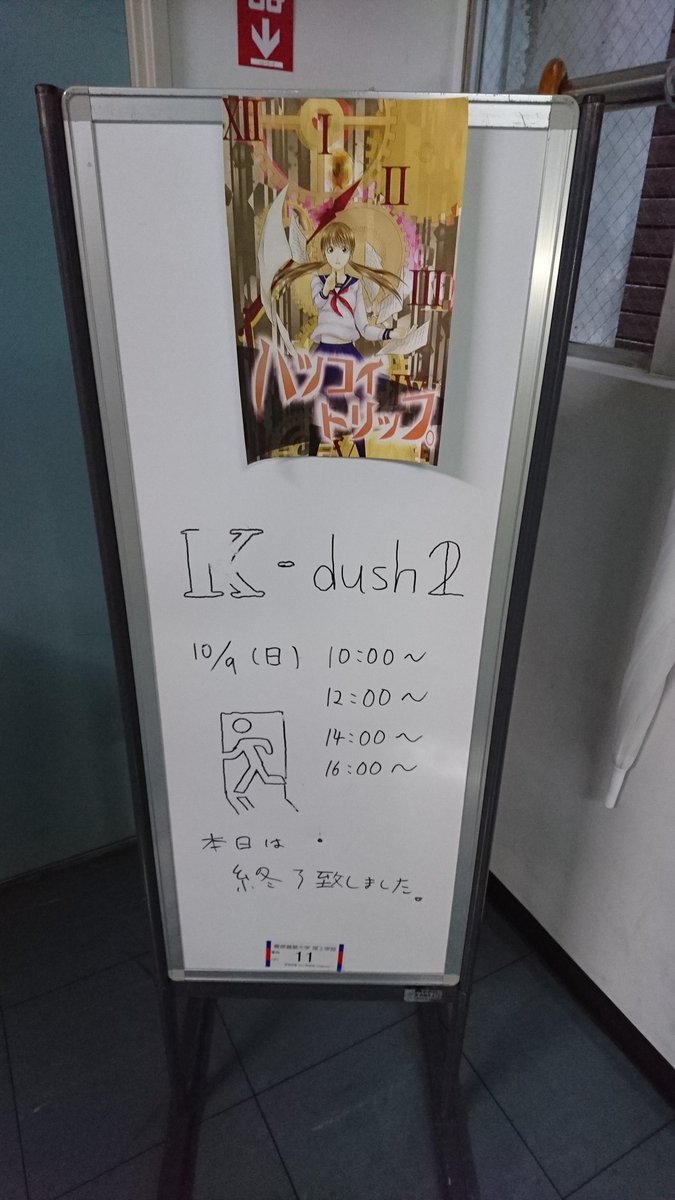 XII
I
II
III
ハツコイ
トリップ。
K-dush2
10/9(日) 10:00～
12:00～
14:00～
16:00～
本日は
終了致しました。
慶應義塾大学 理工学部
11